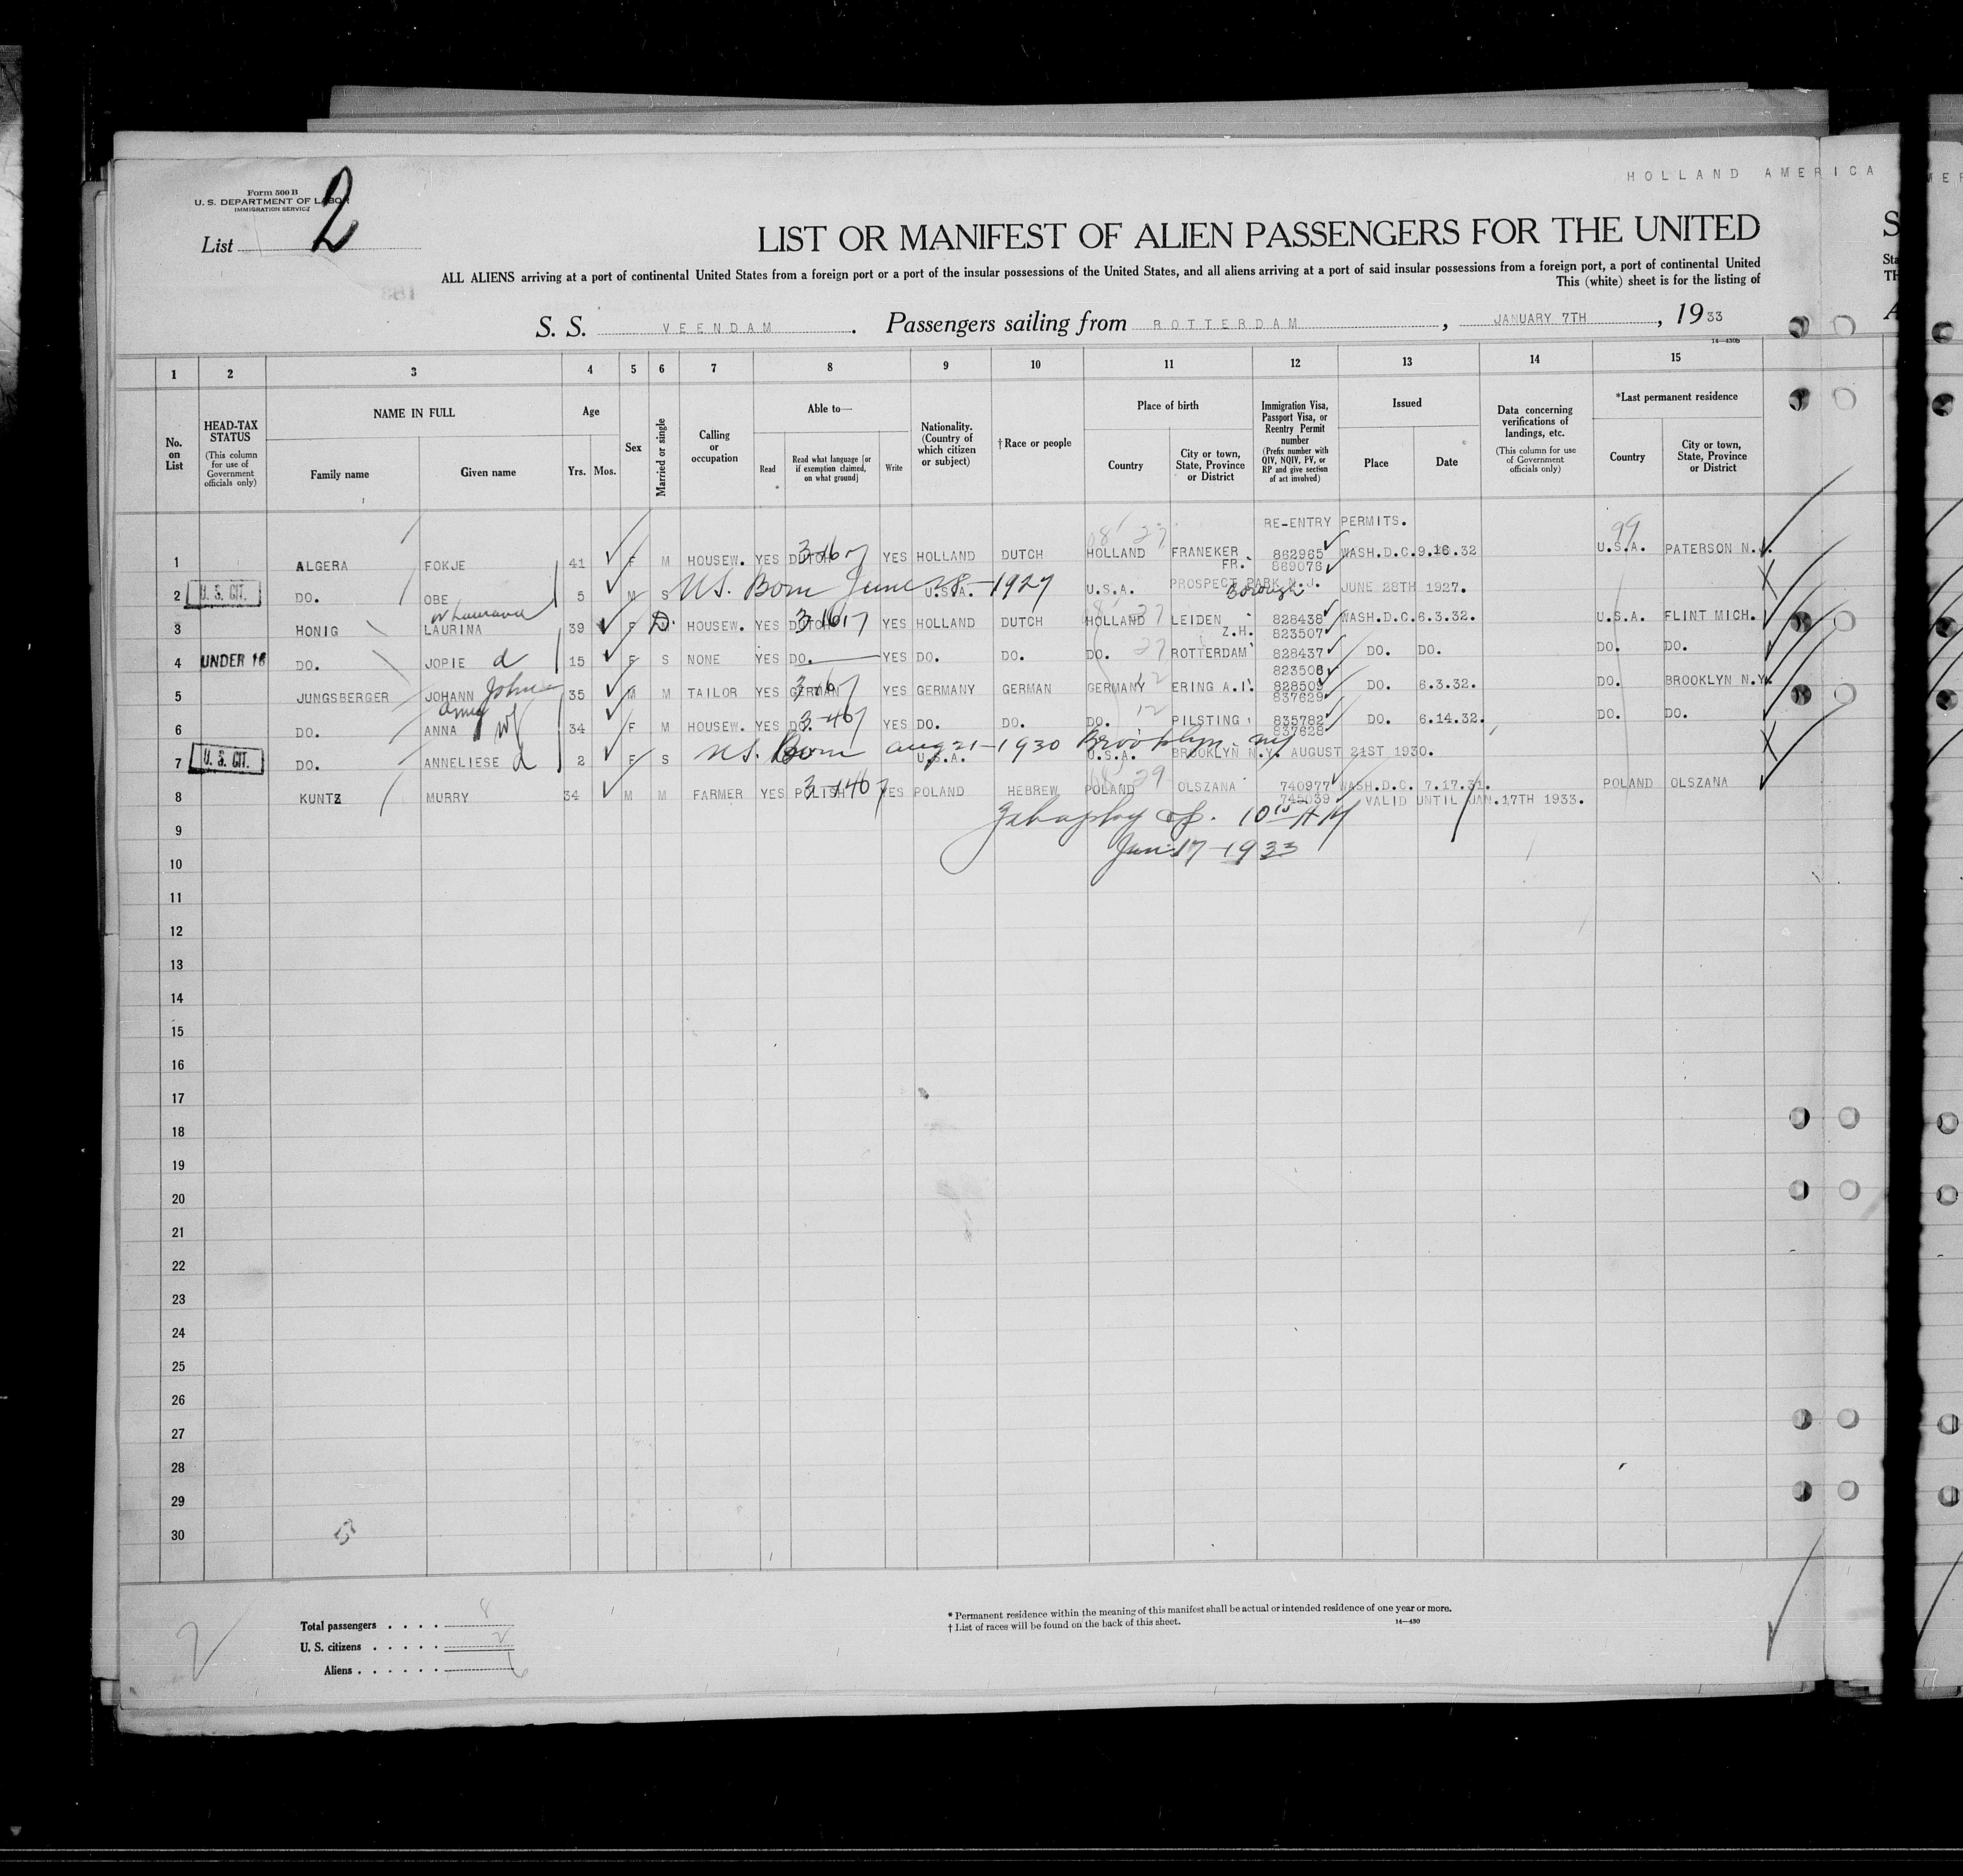 HOLLAND AMERICA
Form 500 B
U. S. DEPARTMENT OF LABOR
IMMIGRATION SERVICE
List 2
LIST OR MANIFEST OF ALIEN PASSENGERS FOR THE UNITED
ALL ALIENS arriving at a port of continental United States from a foreign port or a port of the insular possessions of the United States, and all aliens arriving at a port of said insular possessions from a foreign port, a port of continental United
This (white) sheet is for the listing of
S. S. VEENDAM. Passengers sailing from ROTTERDAM, JANUARY 7TH, 1933
14—430b
1 2 3 4 5 6 7 8 9 10 11 12 13 14 15
No. on List
HEAD-TAX STATUS (This column for use of Government officials only)
NAME IN FULL
Family name
Given name
Age
Yrs. Mos.
Sex
Married or single
Calling or occupation
Able to—
Read
Read what language [or if exemption claimed, on what ground]
Write
Nationality. (Country of which citizen or subject)
†Race or people
Place of birth
Country
City or town, State, Province or District
Immigration Visa, Passport Visa, or Reentry Permit number (Prefix number with QIV, NQIV, PV, or RP and give section of act involved)
Issued
Place
Date
Data concerning verifications of landings, etc. (This column for use of Government officials only)
*Last permanent residence
Country
City or town, State, Province or District
RE-ENTRY PERMITS. 99
1 ALGERA FOKJE 41 F M HOUSEW. YES DUTCH YES HOLLAND DUTCH HOLLAND FRANEKER 862965 WASH.D.C. 9.16.32 U.S.A. PATERSON N.J.
FR. 869076
2 U. S. CIT. DO. OBE 5 M S US. Born June 28-1927 U.S.A. U.S.A. PROSPECT PARK N.J. Borough JUNE 28TH 1927.
3 HONIG LAURINA 39 F D. HOUSEW. YES DUTCH YES HOLLAND DUTCH HOLLAND LEIDEN 828438 WASH.D.C. 6.3.32. U.S.A. FLINT MICH.
Z.H. 823507
4 UNDER 16 DO. JOPIE d 15 F S NONE YES DO. YES DO. DO. DO. ROTTERDAM 828437 DO. DO. DO. DO.
823506
5 JUNGSBERGER JOHANN John 35 M M TAILOR YES GERMAN YES GERMANY GERMAN GERMANY ERING A.I. 828509 DO. 6.3.32. DO. BROOKLYN N.Y.
837629
6 DO. ANNA wf 34 F M HOUSEW. YES DO. YES DO. DO. DO. PILSTING 835782 DO. 6.14.32. DO. DO.
837628
7 U. S. CIT. DO. ANNELIESE d 2 F S US. Born Aug 21-1930 Brooklyn. NY U.S.A. U.S.A. BROOKLYN N.Y. AUGUST 21ST 1930.
8 KUNTZ MURRY 34 M M FARMER YES POLISH YES POLAND HEBREW POLAND OLSZANA 740977 WASH.D.C. 7.17.31. POLAND OLSZANA
745039 VALID UNTIL JAN.17TH 1933.
9 10 15 AM
10 Jan 17-1933
11
12
13
14
15
16
17
18
19
20
21
22
23
24
25
26
27
28
29
30
Total passengers . . . . 8
U. S. citizens . . . . . 2
Aliens . . . . . . 6
2
* Permanent residence within the meaning of this manifest shall be actual or intended residence of one year or more.
† List of races will be found on the back of this sheet.
14—430